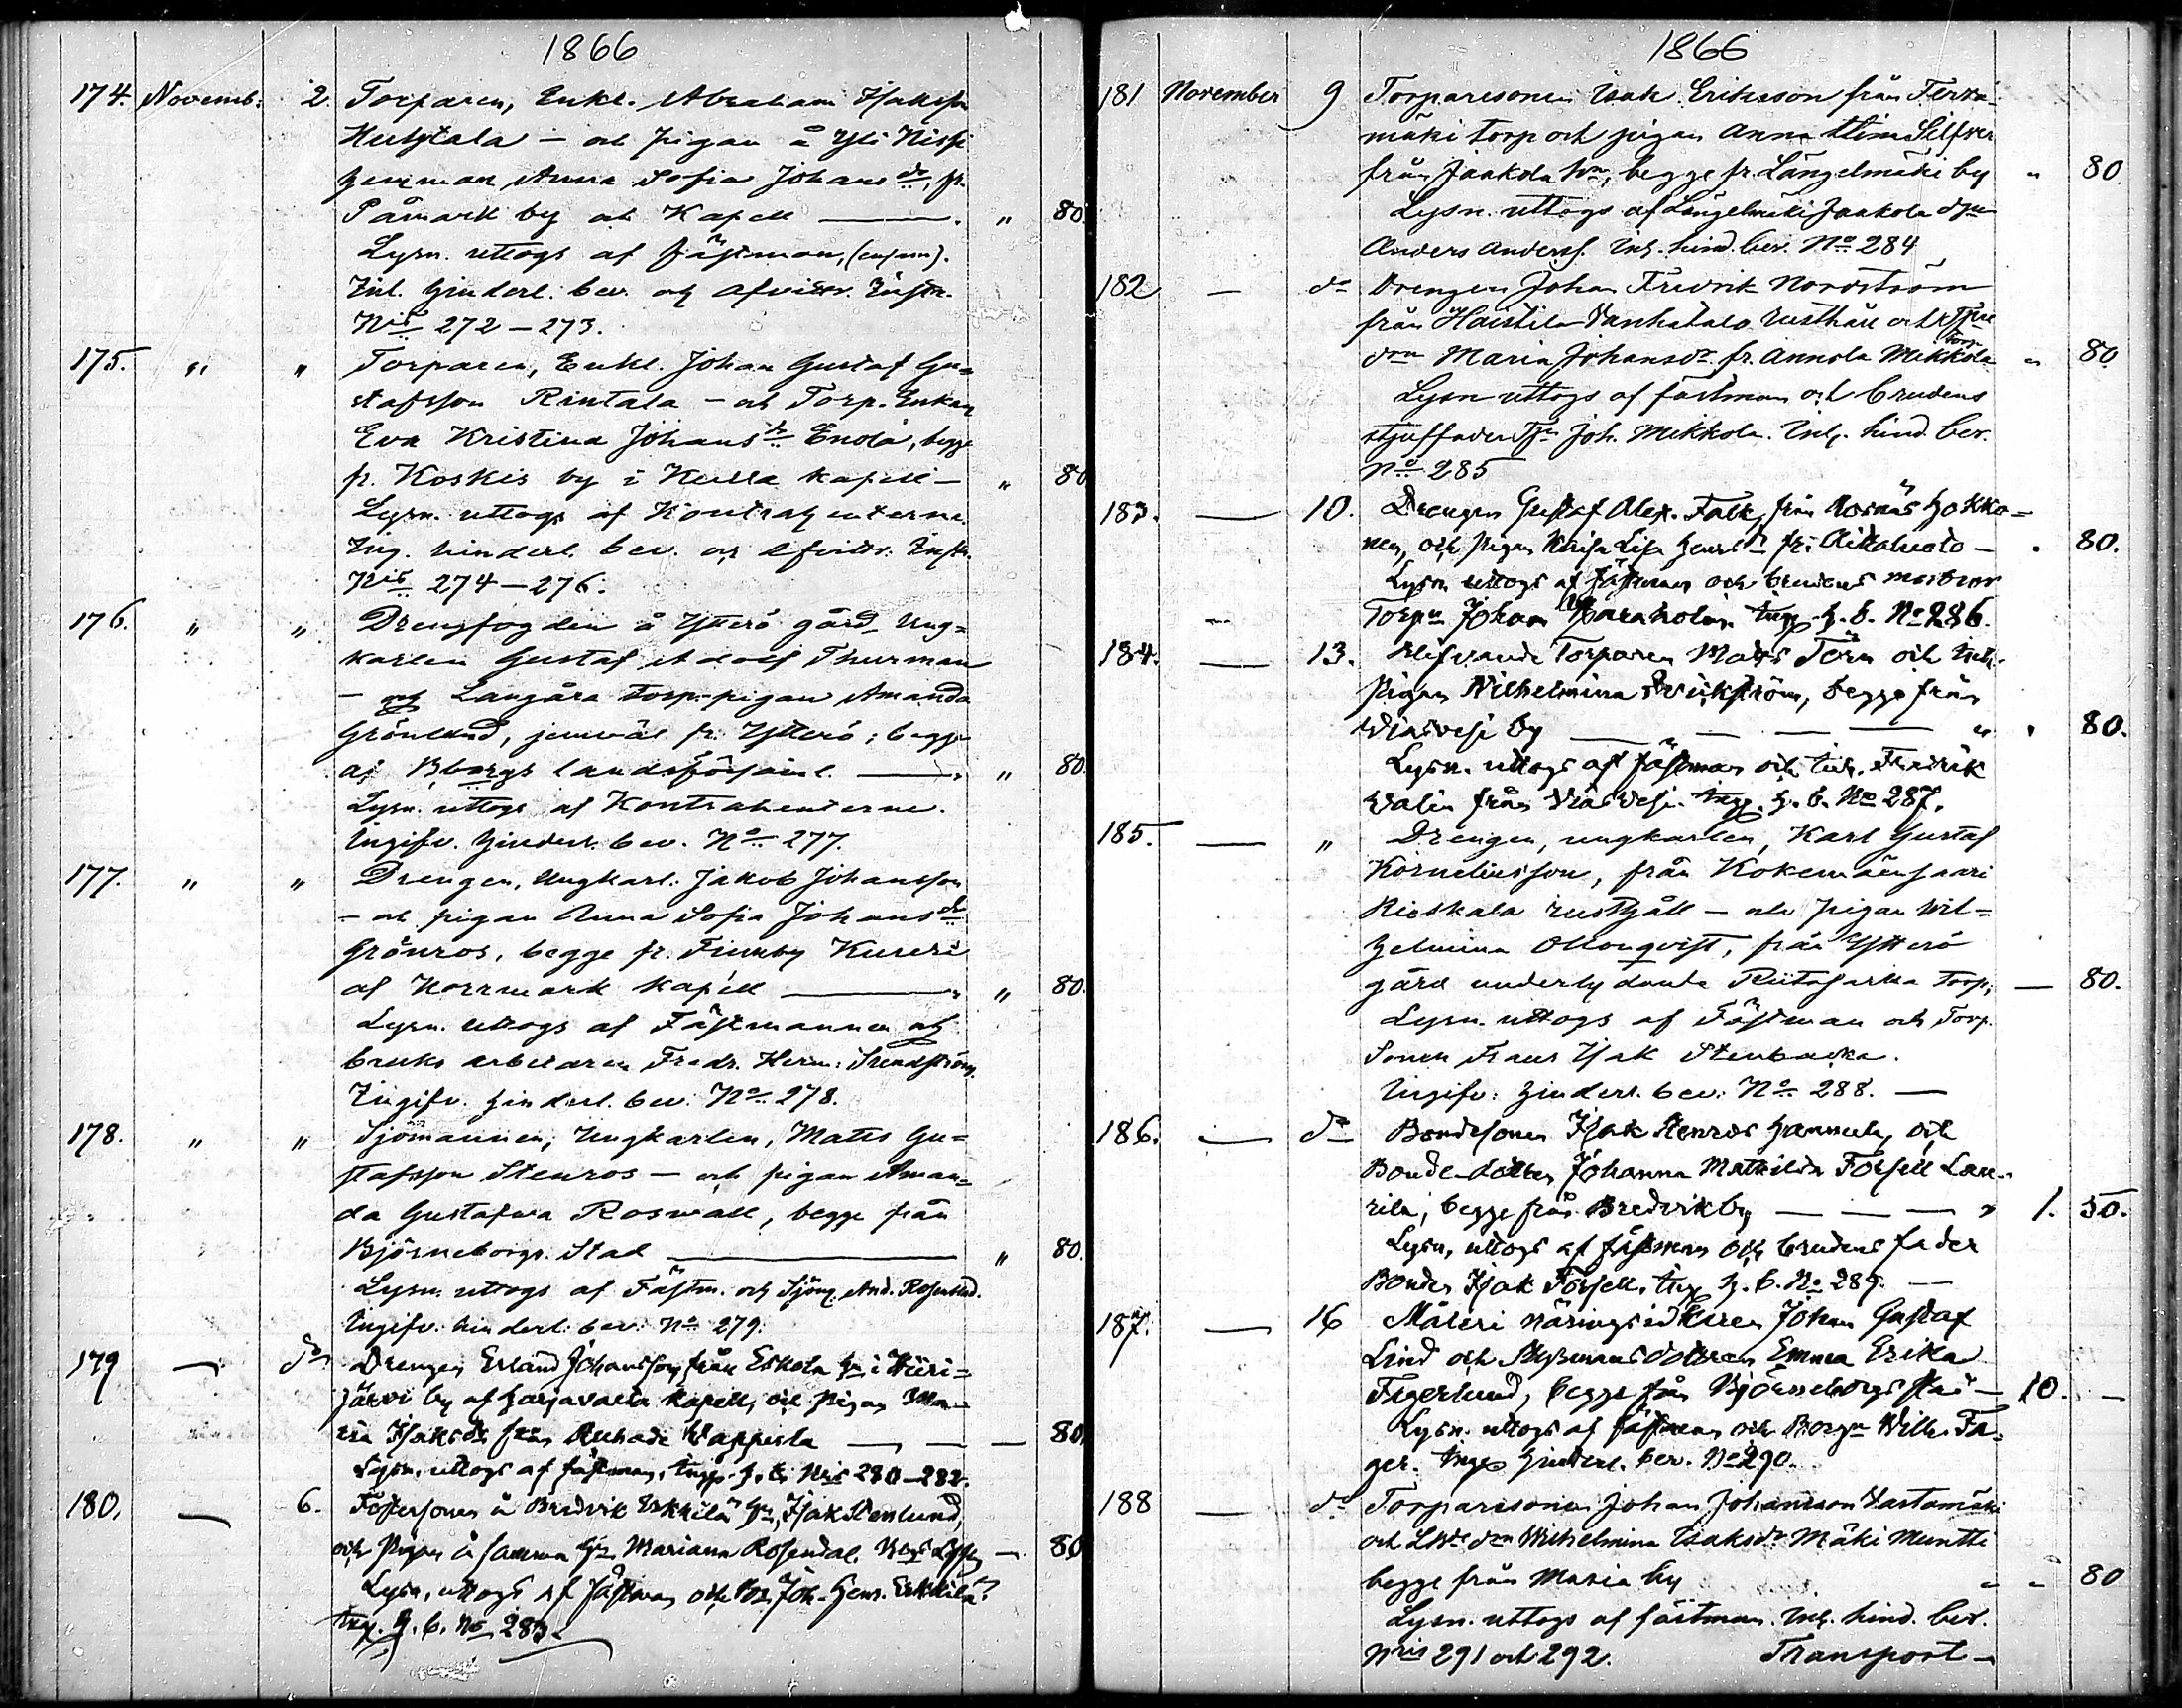 1866
174. Novemb: 2. Torparen, Enkl. Abraham Isaksson
Huhtala — och pigan å Yli Nissi
hemman Anna Sofia Johansdr, fr.
Påmark by och Kapell — " 80
Lysn. uttogs af fästman, (ensam).
Inl. hinderl. bev. och afvittr. Instr.
Nris 272 – 273.
175. " " Torparen, Enkl. Johan Gustaf Gu=
stafsson Rintala — och Torp. Enkan
Eva Kristina Johansdr Enola, begge
fr. Koskis by i Kulla kapell — " 80
Lysn. uttogs af Kontrahenterna.
Ing. hinderl. bev. och Afvittr. Instr.
Nris 274 – 276.
176. " " Drengfogden å Ytterö gård, Ung=
karlen Gustaf Adolf Thurman
— och Langåra Torp. pigan Amanda
Grönlund, jemväl fr. Ytterö; begge
af Bborgs landsförsaml. — " 80.
Lysn. uttogs af Kontrahenterne.
Ingifv. hinderl. bev. No 277.
177. " " Drengen, Ungkarl. Jakob Johansson
— och pigan Anna Sofia Johansdr
Grönros, begge fr. Finnby Kuseri
af Norrmark kapell — " 80.
Lysn. uttogs af Fästmannen och
bruks arbetaren Fredr. Herm: Strandström.
Ingifv. hinderl. bev. No 278.
178. " " Sjömannen, Ungkarlen, Matts Gu=
stafsson Stenros — och pigan Aman=
da Gustafva Roswall, begge från
Björneborgs Stad — " 80.
Lysn. uttogs af Fästm. och Sjöm. And. Rosenblad.
Ingifv. hinderl. bev. No 279.
179 — do Drengen Erland Johansson från Eskola hn i Hiiri=
järvi by af Harjavalta kapell, och pigan Ma-
ria Isaksdr från Wapperla — — — 80.
Lysn. uttogs af fästman, Nris 280 – 282.
180. — 6. Fostersonen å Bredvik Erkkilä hn, Isak Stenlund,
och Pigan å samma hn Mariana Rosendal — 80
Lysn. uttogs af fästman och Joh. Henr. Erkkilä.
Ing. h. b. No 283.
1866
181 November 9 Torparesonen Isak Eriksson från Tervä-
mäki torp och pigan Anna Stina Silfver
från Jaakola hn, begge fr. Längelmäki by " 80
Lysn. uttogs af Längelmäki Jaakola
Anders Anderss. Inl. hind. bev. No 284
182 — do Drengen Johan Fredrik Nordström
från Haistila Vanhatalo rusthåll och Tpre
drn Maria Johansdr fr. Annola Mikkola torp " 80
Lysn uttogs af fästman och brudens
styffader Tpn Joh. Mikkola. Inl. hind. bev.
No 285
183. — 10. Drengen Gustaf Alex. Falk, från Rosnäs Hokko=
nen, och pigan Lisa Henrsdr fr. — . 80.
Lysn. uttogs af fästman och brudens morbror
Torpn Johan Ing. h. b. No 286.
184. — 13. Torparen Matts Törn och
Pigan Wilhelmina Wickström, begge från
Wiasvesi by — — — — " . 80.
Lysn. uttogs af fästman och Fredrik
Walin från Wiasvesi. Ing. h. b. No 287.
185. — " Drengen, ungkarlen, Karl Gustaf
Korneliusson, från Kokemäensaari
Rieskala rusthåll — och pigan Wil=
helmina Ollonqvist, från Ytterö
gård underlydande torp, — 80.
Lysn. uttogs af Fästman och Torp.
Sonen Frans Isak Stenbacka.
Ingifv. hinderl. bev. No 288. —
186. — do Bondesonen Isak Stenros Hannula, och
Bonde-dotter Johanna Mathilda Forsell Lau-
rila, begge från Bredvik by — — — " 1. 50.
Lysn. uttogs af fästman och brudens fader
Bonden Isak Forsell, Ing. h. b. No 289. —
187. — 16 Måleri näringsidkaren Johan Gustaf
Lind och dottren Emma Erika
Fagerlund, begge från Björneborgs stad — 10. —
Lysn. uttogs af fästman och Borgn Wilh. Fa=
ger. Ing. hinderl. bev. No 290.
188 — do Torparesonen Johan Johansson Vastamäki
och drn Wilhelmina Isaksdr Mäki Muntti
begge från Masia by " " 80
Lysn. uttogs af fästman. Inl. hind. bev.
Nris 291 och 292. Transport —